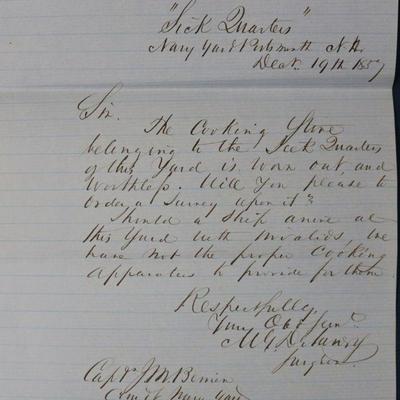 "Sick Quarters"
Navy Yard Portsmouth N.H.
Decr. 19th 1857
Sir.
The Cooking Stove
belonging to the Sick Quarters
of this Yard is worn out, and
worthless. Will you please to
order, a Survey upon it?
Should a Ship arrive at
this Yard with invalids, we
have not the proper Cooking
Apparatus to provide for them.
Respectfully,
Your Obt. Servt.
M. G. Delaney
Surgeon
Capt. J.M.
Comdt Navy Yard